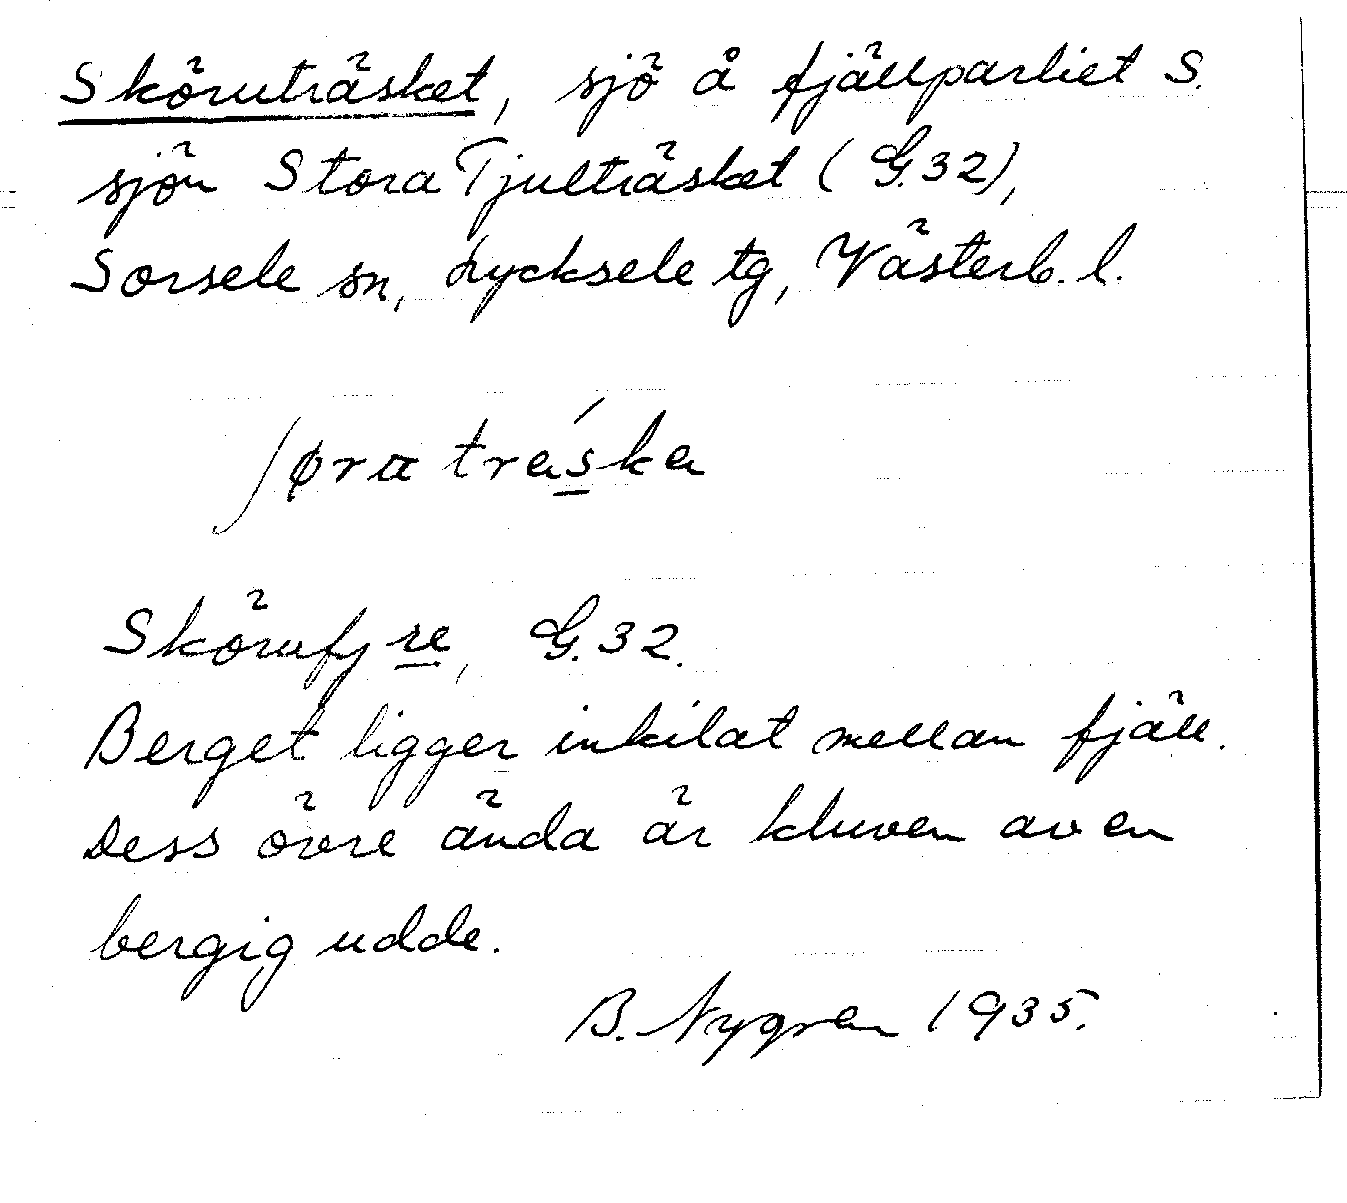 Sköruträsket, sjö å fjällpartiet S.
sjön Stora Tjulträsket (G.32),
Sorsele sn, Lycksele tg, Västerb. l.
ʃøra tráska
Skörufjre, G.32.
Berget ligger inkilat mellan fjäll.
Dess övre ända är kluven av en
bergig udde.
B. Nygren 1935.